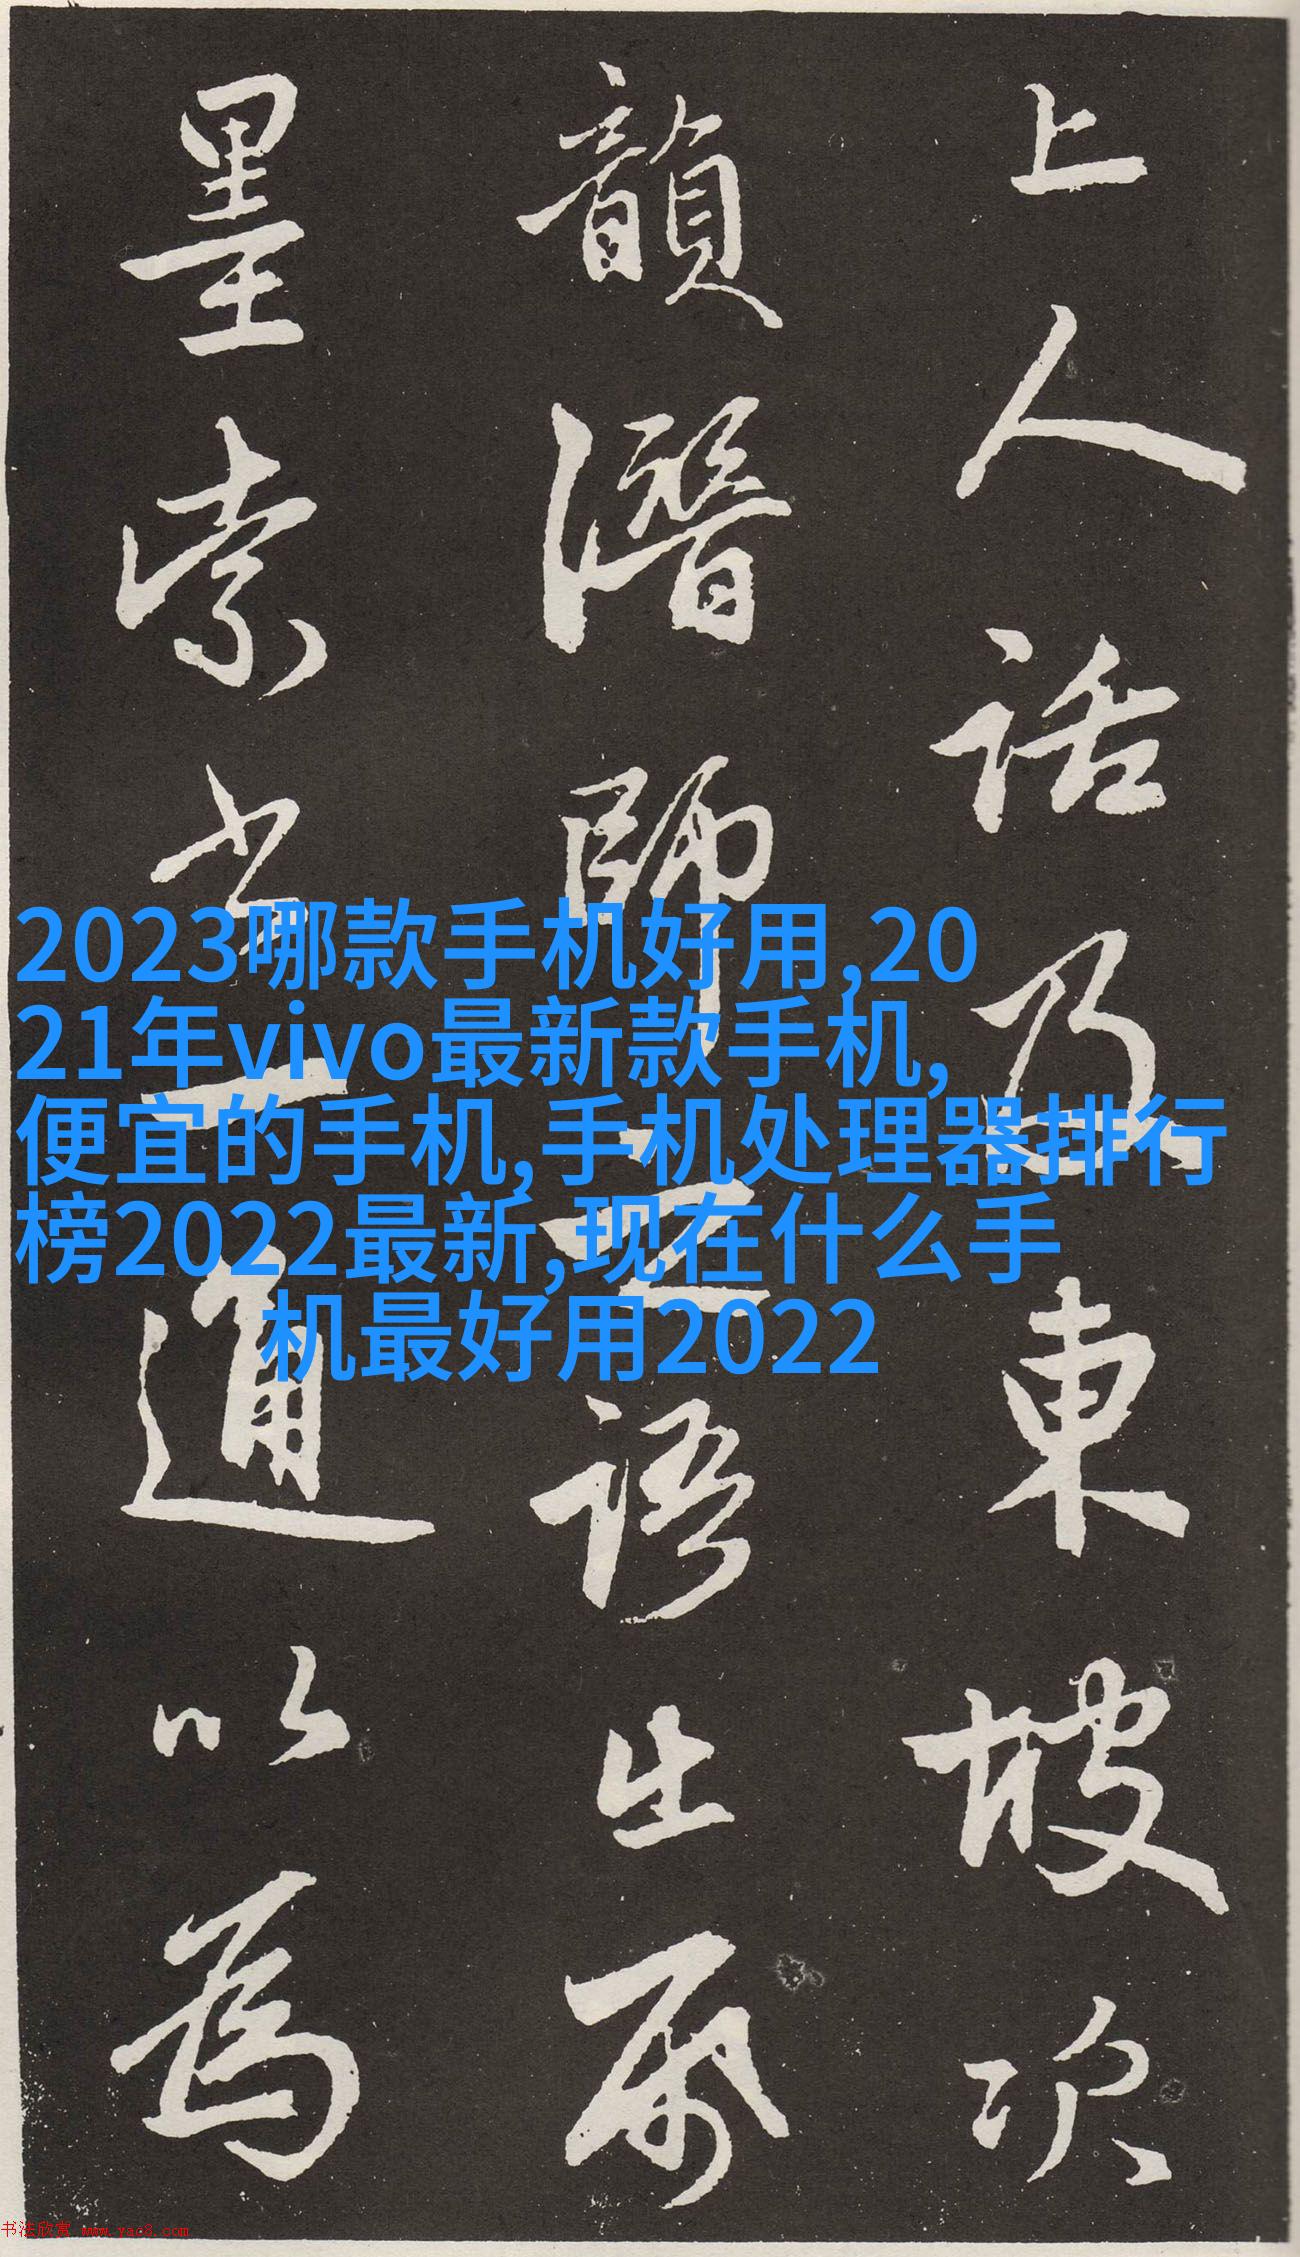 上人話乃東坡次
韻潛師語
墨索書一通以為
2023哪款手机好用,20
21年vivo最新款手机,
便宜的手机,手机处理器排行
榜2022最新,现在什么手
机最好用2022
书法欣赏 www.yac8.com